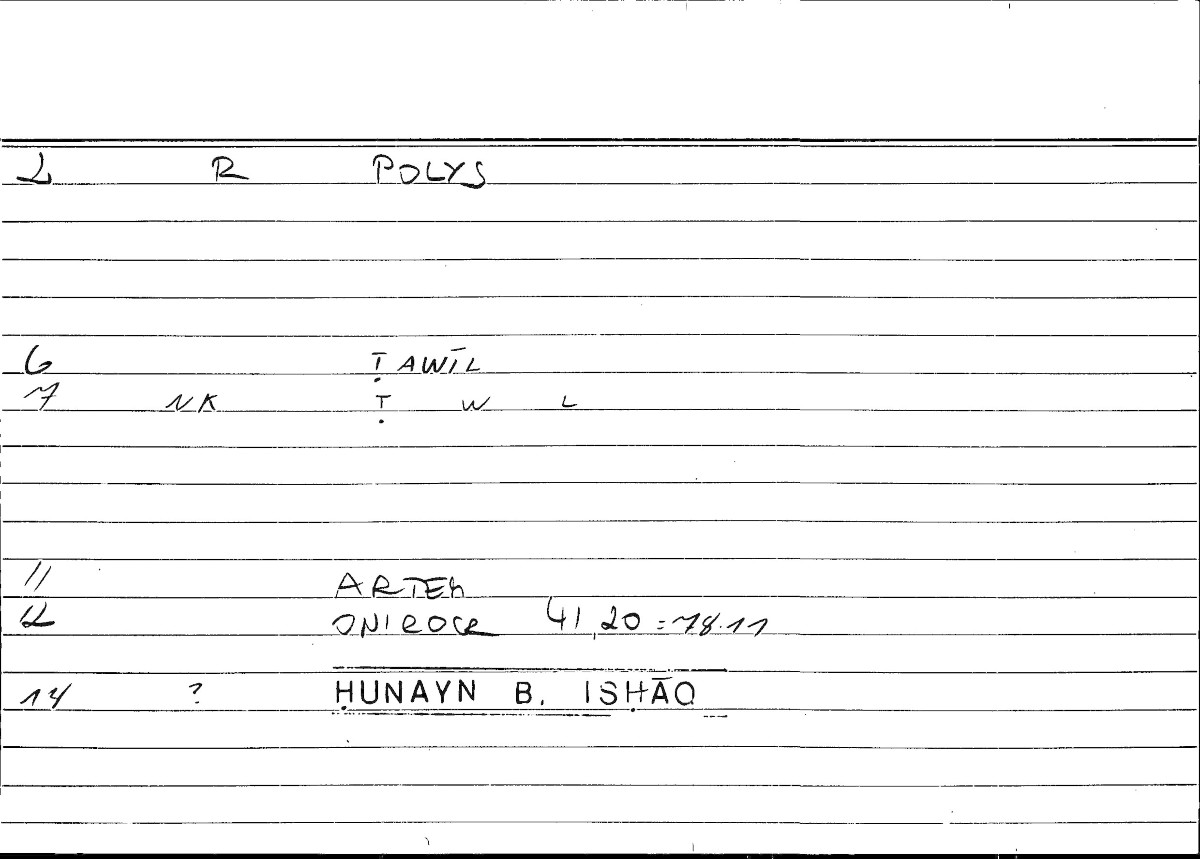 2 R POLYS
6 ṬAWĪL
7 NK Ṭ W L
11 ARTEM
12 ONIROCR 41,20 = 78.11
14 ? ḤUNAYN B. ISḤĀQ